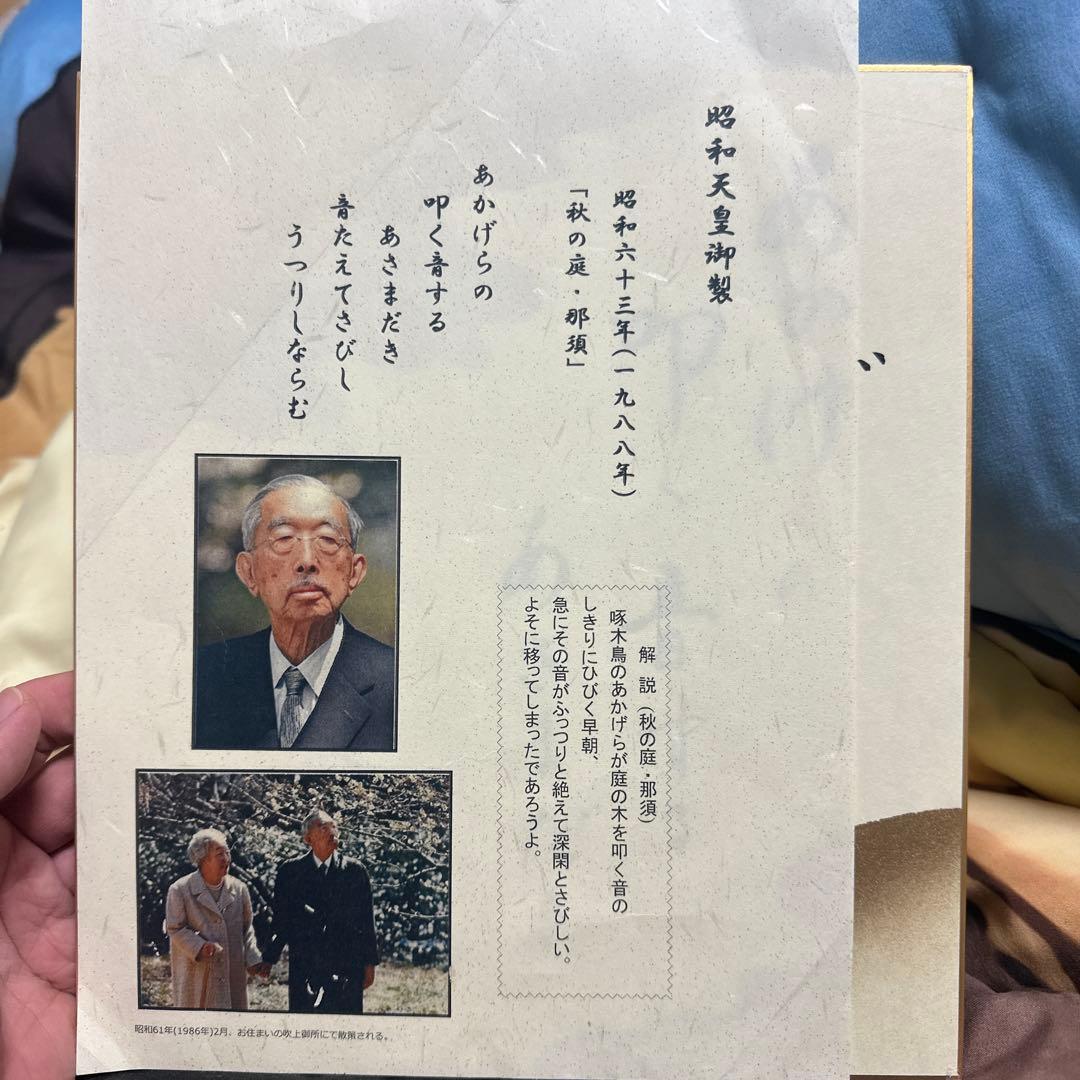 昭和天皇御製
昭和六十三年(一九八八年)
「秋の庭・那須」
あかげらの
叩く音する
あさまだき
音たえてさびし
うつりしならむ
解説(秋の庭・那須)
啄木鳥のあかげらが庭の木を叩く音の
しきりにひびく早朝、
急にその音がふっつりと絶えて深閑とさびしい。
よそに移ってしまったであろうよ。
昭和61年(1986年)2月、お住まいの吹上御所にて散策される。